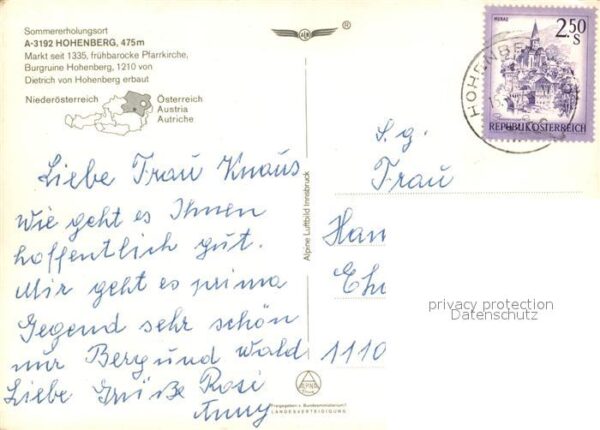 Sommererholungsort
A-3192 HOHENBERG, 475m
Markt seit 1335, frühbarocke Pfarrkirche,
Burgruine Hohenberg, 1210 von
Dietrich von Hohenberg erbaut
Niederösterreich
Österreich
Austria
Autriche
Liebe Frau Knaus
Wie geht es Ihnen
hoffentlich gut.
Mir geht es prima
Gegend sehr schön
nur Berg und Wald
Liebe Grüße Rosi
Anny
Alpine Luftbild Innsbruck
Freigegeben v. Bundesministerium f.
LANDESVERTEIDIGUNG
MURAU
2.50
S
REPUBLIK ÖSTERREICH
HOHENBERG
S.g.
Frau
Han
Eh
1110
privacy protection
Datenschutz